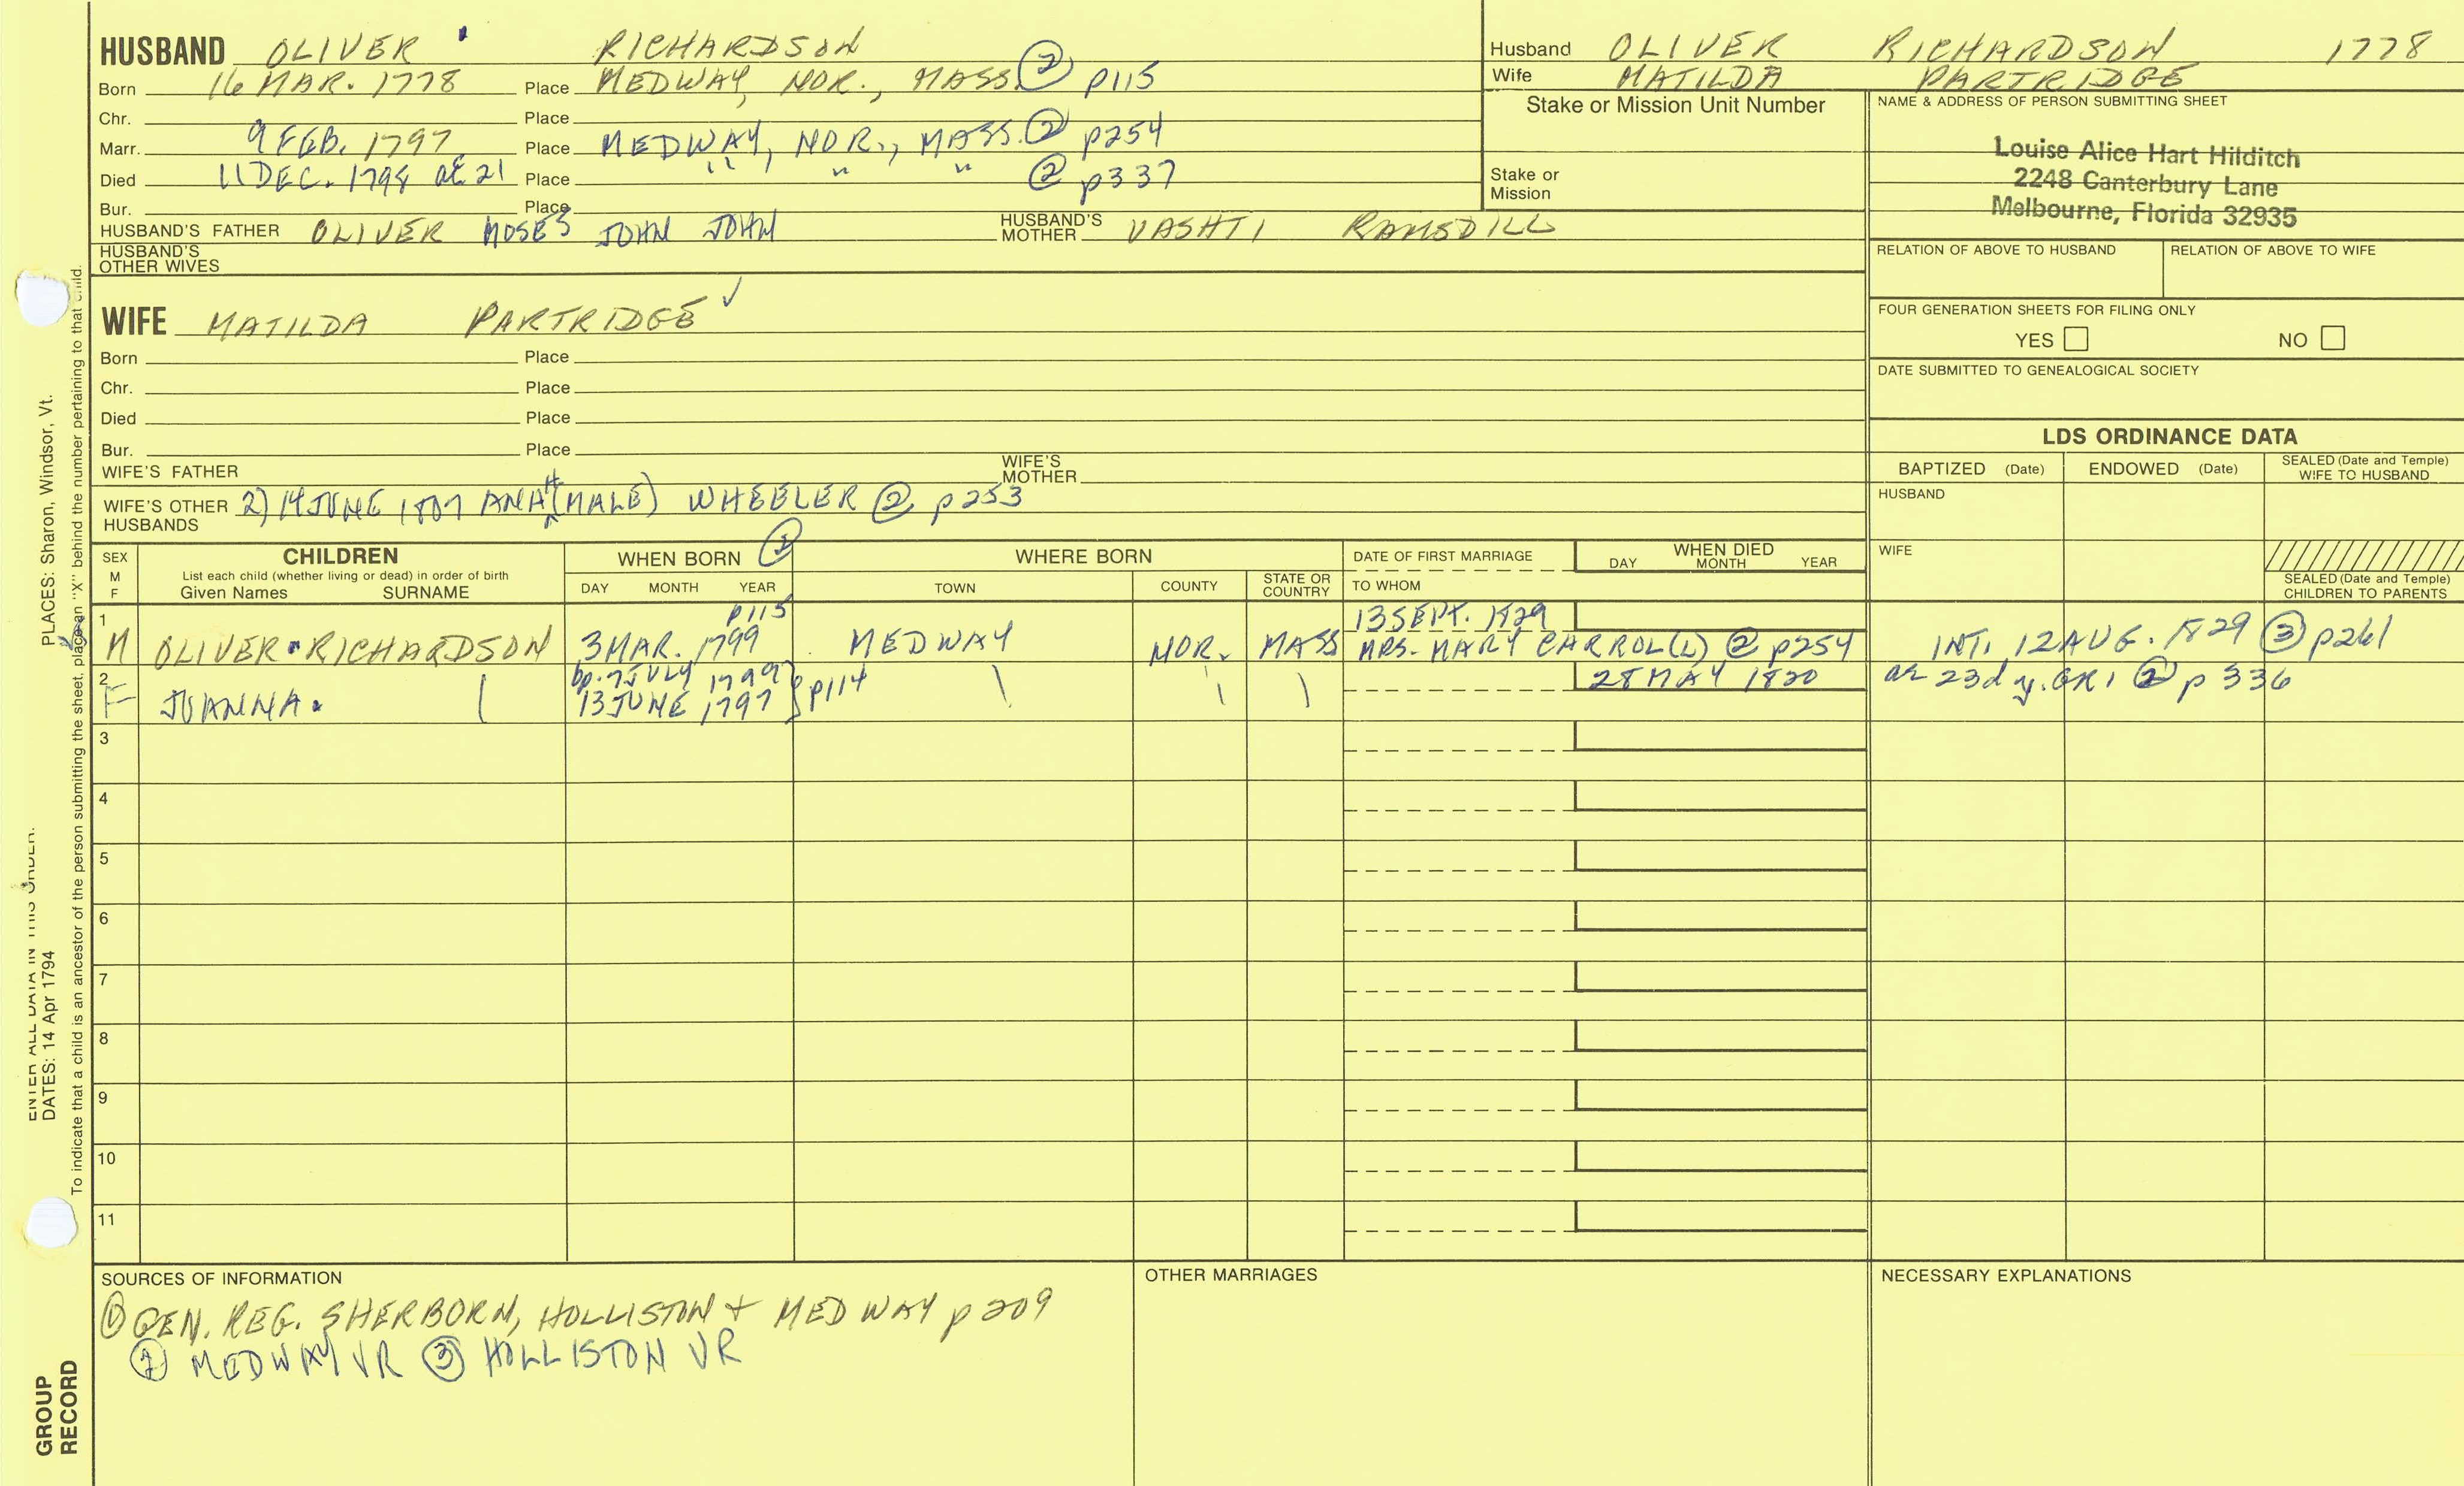 HUSBAND OLIVER RICHARDSON
Born 16 MAR. 1778 Place MEDWAY, NOR., MASS. ② p115
Chr. Place
Marr. 9 FEB. 1797 Place MEDWAY, NOR., MASS. ② p254
Died 11 DEC. 1798 ae 21 Place " " " ② p337
Bur. Place
HUSBAND'S FATHER OLIVER MOSES JOHN JOHN HUSBAND'S MOTHER VASHTI RAMSDILL
HUSBAND'S OTHER WIVES
Husband OLIVER RICHARDSON 1778
Wife MATILDA PARTRIDGE
Stake or Mission Unit Number
Stake or Mission
NAME & ADDRESS OF PERSON SUBMITTING SHEET
Louise Alice Hart Hilditch
2248 Canterbury Lane
Melbourne, Florida 32935
RELATION OF ABOVE TO HUSBAND RELATION OF ABOVE TO WIFE
FOUR GENERATION SHEETS FOR FILING ONLY
YES NO
DATE SUBMITTED TO GENEALOGICAL SOCIETY
WIFE MATILDA PARTRIDGE ✓
Born Place
Chr. Place
Died Place
Bur. Place
WIFE'S FATHER WIFE'S MOTHER
WIFE'S OTHER HUSBANDS 2) 14 JUNE 1807 ANAH (MALE) WHEELER ② p253
LDS ORDINANCE DATA
BAPTIZED (Date) ENDOWED (Date) SEALED (Date and Temple) WIFE TO HUSBAND
HUSBAND
WIFE
SEALED (Date and Temple) CHILDREN TO PARENTS
SEX M F
CHILDREN
List each child (whether living or dead) in order of birth
Given Names SURNAME
WHEN BORN ②
DAY MONTH YEAR
WHERE BORN
TOWN COUNTY STATE OR COUNTRY
DATE OF FIRST MARRIAGE
TO WHOM
WHEN DIED
DAY MONTH YEAR
p115 13 SEPT. 1829
1 M OLIVER RICHARDSON 3 MAR. 1799 MEDWAY NOR. MASS MRS. MARY CARROL(L) ② p254 INT. 12 AUG. 1829 ③ p261
bp. 7 JULY 1799 28 MAY 1820 ae 23d y. GR1 ② p 336
2 F JOANNA 13 JUNE 1797 } p114
3
4
5
6
7
8
9
10
11
SOURCES OF INFORMATION
① GEN. REG. SHERBORN, HOLLISTON + MEDWAY p 209
② MEDWAY VR ③ HOLLISTON VR
OTHER MARRIAGES
NECESSARY EXPLANATIONS
PLACES: Sharon, Windsor, Vt.
DATES: 14 Apr 1794
ENTER ALL DATA IN THIS ORDER:
To indicate that a child is an ancestor of the person submitting the sheet, place an "X" behind the number pertaining to that child.
GROUP RECORD